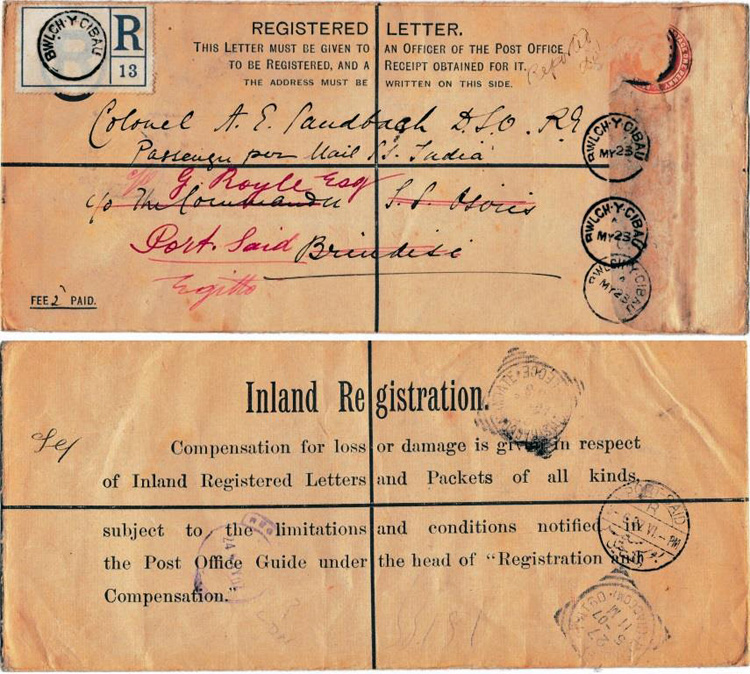 BWLCH-Y-CIBAU
R
13
REGISTERED LETTER.
THIS LETTER MUST BE GIVEN TO AN OFFICER OF THE POST OFFICE
TO BE REGISTERED, AND A RECEIPT OBTAINED FOR IT.
THE ADDRESS MUST BE WRITTEN ON THIS SIDE.
Colonel A. E. Sandbach D.S.O. R.E
Passenger per Mail SS. India
c/o G Royle Esq
c/o The Commander S.S. Osiris
Port Said Brindisi
Egitto
FEE 2 PAID.
BWLCH-Y-CIBAU
MY 23
BWLCH-Y-CIBAU
A
MY 23
BWLCH-Y-CIBAU
A
MY 23
Inland Registration.
Compensation for loss or damage is given in respect
of Inland Registered Letters and Packets of all kinds,
subject to the limitations and conditions notified in
the Post Office Guide under the head of "Registration and
Compensation."
PORT SAID
R